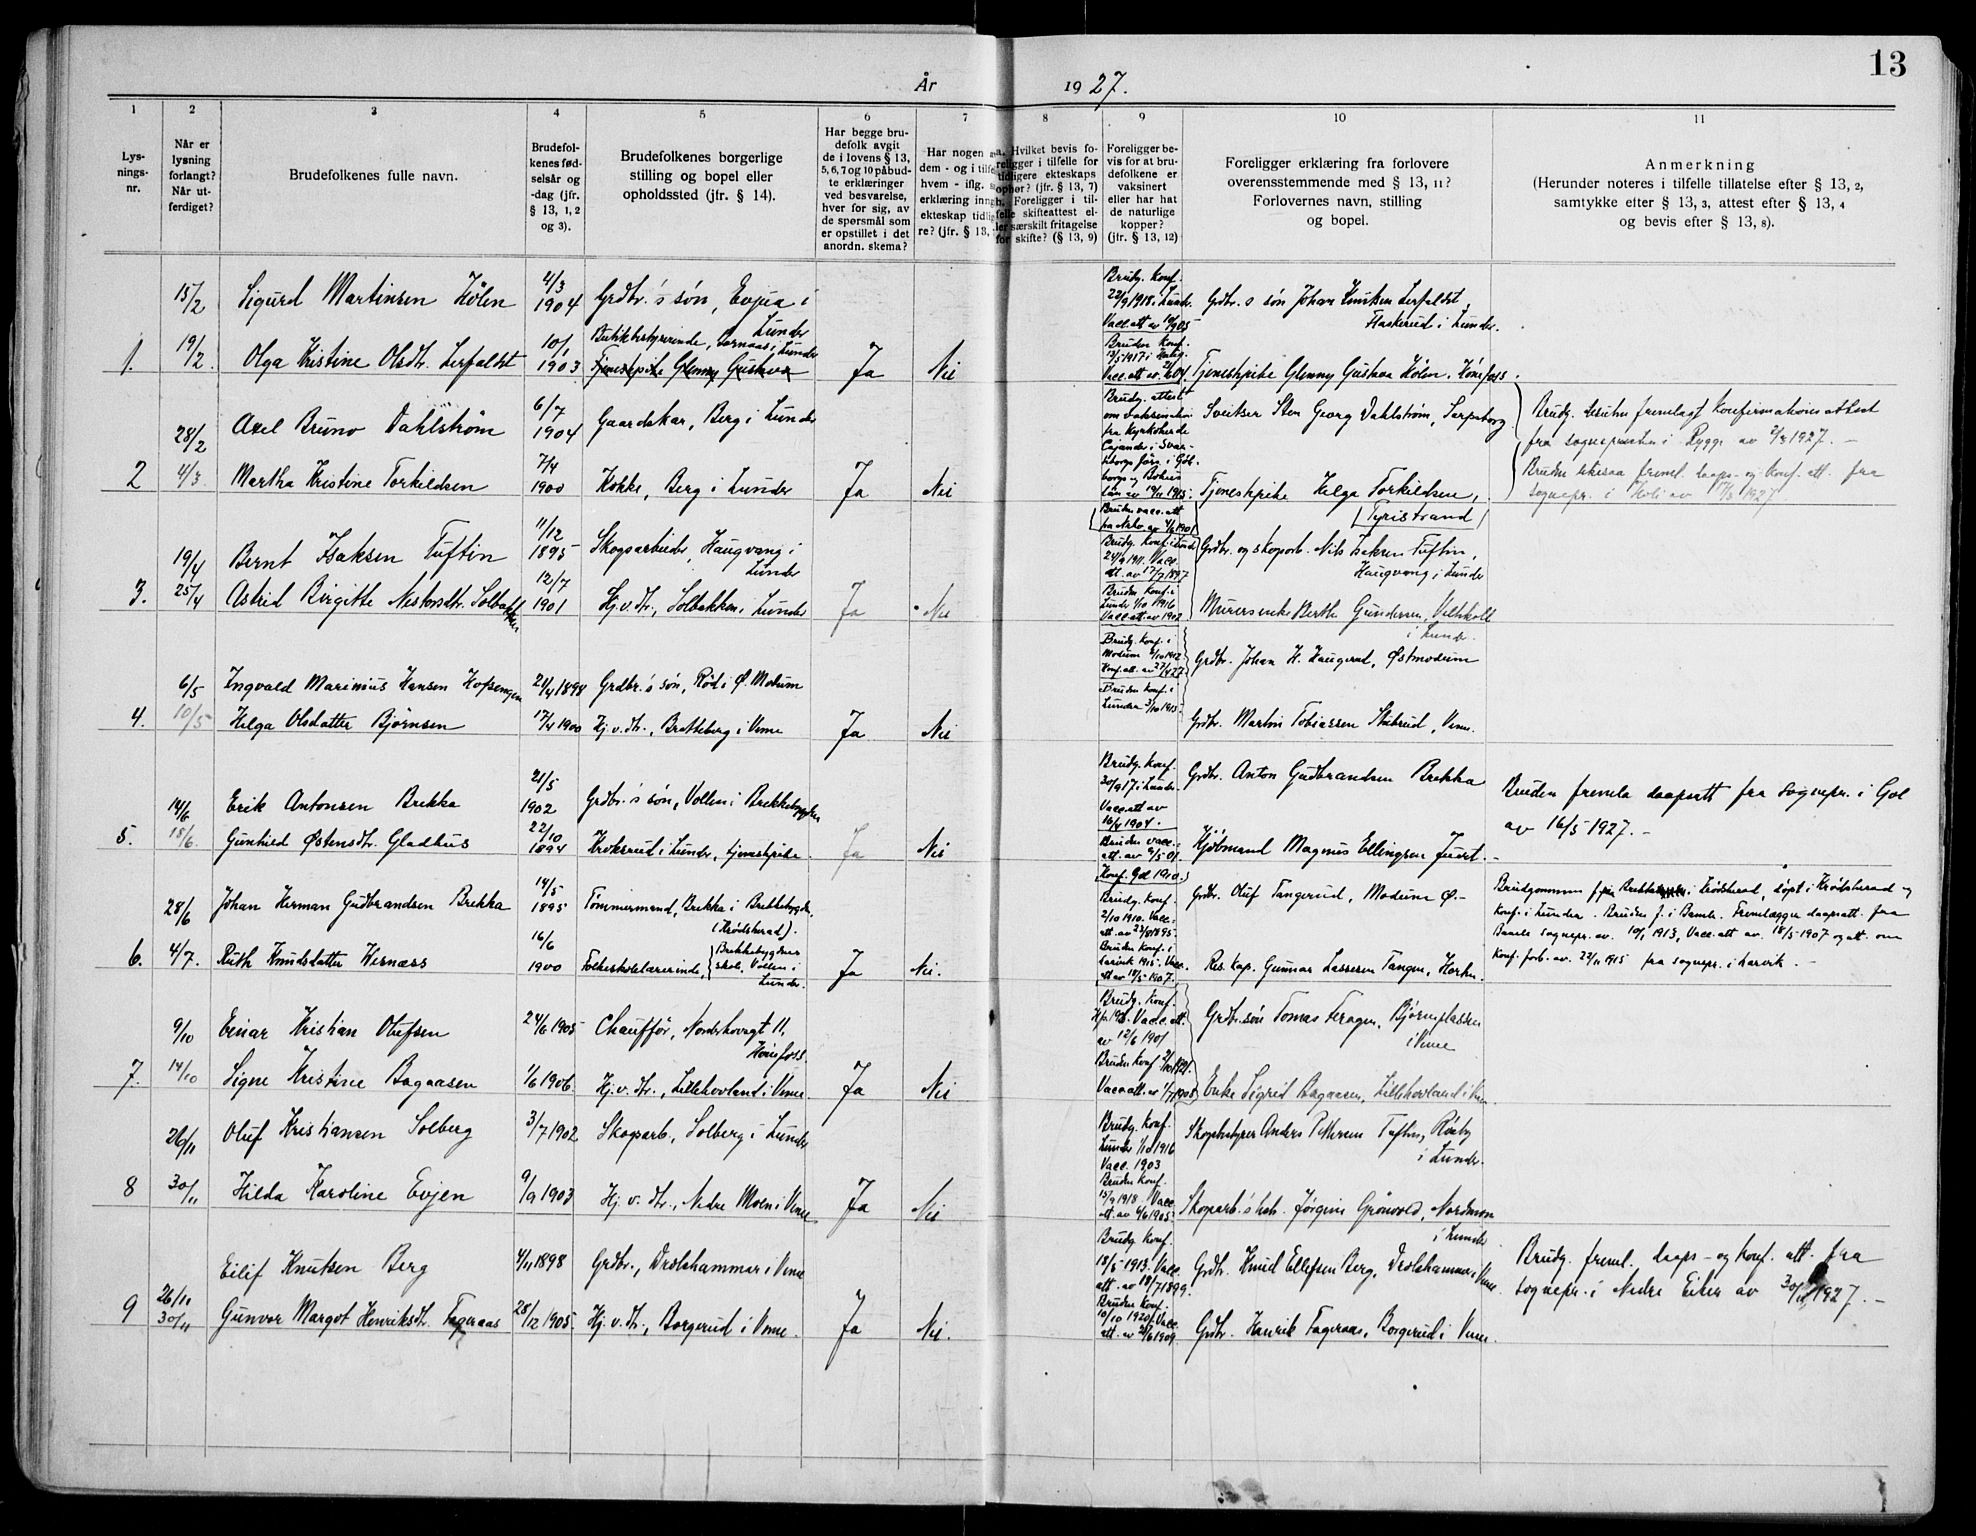 13
År 1927.
1
Lysningsnr.
2
Når er lysning forlangt? Når utferdiget?
3
Brudefolkenes fulle navn.
4
Brudefolkenes fødselsår og -dag (jfr. § 13, 1, 2 og 3).
5
Brudefolkenes borgerlige stilling og bopel eller opholdssted (jfr. § 14).
6
Har begge brudefolk avgit de i lovens § 13, 5, 6, 7 og 10 påbudte erklæringer ved besvarelse, hver for sig, av de spørsmål som er opstillet i det anordn. skema?
7
Har nogen a
dem - og i tilfe
hvem - iflg. s
erklæring inng
ekteskap tidlig
re? (jfr. § 13,
8
a. Hvilket bevis foreligger i tilfelle for tidligere ekteskaps ophør? (jfr. § 13, 7)
b. Foreligger i tilfelle skifteattest eller særskilt fritagelse for skifte? (§ 13, 9)
9
Foreligger bevis for at brudefolkene er vaksinert eller har hat de naturlige kopper? (jfr. § 13, 12)
10
Foreligger erklæring fra forlovere overensstemmende med § 13, 11? Forlovernes navn, stilling og bopel.
11
Anmerkning
(Herunder noteres i tilfelle tillatelse efter § 13, 2, samtykke efter § 13, 3, attest efter § 13, 4 og bevis efter § 13, 8).
15/2 Sigurd Martinsen Hølen 4/3 1904 Grdbr.'s søn, Evjua i Lunder
Brudg. Konf. 22/9 1918 i Lunder. Vacc. att. av 10/ 1905
Grdbr.s søn Johan Knutsen Lerfaldet, Flaskerud i Lunder.
1. 19/2 Olga Kristine Olsdtr. Lerfaldet 10/1 1903 Butikbestyrerinde, i Lunder
Tjenestpike Glenny Gustava
Ja Nei
Bruden Konf.
Tjenestpike Glenny Gustava Hølen, Hønefoss.
28/2 Axel Bruno Dahlstrøm 6/7 1904 Gaardskar, Berg i Lunder
Brudg. attest om vakcination fra Kyrkoherde Cajander i
Sveitser Sten Georg Dahlstrøm, Sarpsborg
Brudg. fremlagt Konfirmationsattest fra sognepresten i Rygge av 2/3 1927. -
2 4/3 Martha Kristine Torkildsen 7/4 1900 Kokke, Berg i Lunder Ja Nei
Bruden vacc. att.
Tjenestpike Helga Torkildsen, Tyristrand
Bruden freml. daaps- og konf. att. fra sognepr. i Hole av 1927
19/4 Bernt Isaksen Tuftin 11/12 1895 Skogsarbeider, Haugvang i Lunder
Brudg. Konf. i Lunder 24/9 1911. Vacc. att. av 17/7 1897
Grdbr. og skogarb. Nils Isaksen Tuftin, Haugvang i Lunder
3. 25/4 Astrid Birgitte Nestorsdtr. Solbakken 12/7 1901 Hj. v. dtr., Solbakken i Lunder Ja Nei
Bruden Konf. i Lunder 1/10 1916 Vacc. att. av 1902
Murersenke Berthe Gundersen, i Lunder.
6/5 Ingvald Marinius Hansen Hofsengen 21/4 1898 Grdbr.'s søn, Rød i Ø. Modum
Brudg. Konf. i Modum 6/10 1912 Konf. att. av 27/4 27
Grdbr. Johan H. Haugerud, Østmodum
4. 10/5 Helga Olsdatter Bjørnsen 17/4 1900 Hj. v. dtr., Bratteberg i Veme Ja Nei
Bruden Konf. i Lunder 3/10 1915.
Grdbr. Martin Tobiassen Skibrud, Veme.
14/6 Erik Antonsen Brekka 21/5 1902 Grdbr.'s søn, Vollen i Brekkebygden
Brudg. Konf. 30/9 17 i Lunder. Vacc. att. av 16/4 1904.
Grdbr. Anton Gudbrandsen Brekka
Bruden fremla daapsatt. fra sognepr. i Gol av 16/5 1927. -
5. 18/6. Gunhild Østensdtr. Gladhus 22/10 1894 Kroksrud i Lunder, tjenestpike. Ja Nei
Bruden vacc. att. av 9/5 01. Konf. Gol 1910.
Kjøbmand Magnus Ellingsen Juvet. -
28/6 Johan Herman Gudbrandsen Brekka 14/5 1895 Tømmermand, Brekka i Brekkebygden, (Krødsherad).
Brudg. Konf. 2/10 1910. Vacc. att. av 23/8 1895.
Grdbr. Oluf Tangerud, Modum Ø. -
Brudgommen f. i Krødsherad, døpt i Krødsherad og konf. i Lunder. Bruden f. i Bamle. Fremlægger daapsatt. fra Bamle sognepr. av 10/1 1913, Vacc. att. av 18/5 1907 og att. om konf. forb. av 22/11 1915 fra sognepr. i Larvik. -
6. 4/7. Ruth Knudsdatter Wernæss 16/6 1900 Folkeskolelærerinde, Brekkebygdens skole, Vollen i Lunder. Ja Nei.
Bruden Konf. i Larvik 1915. Vacc. att. av 18/5 1907.
Res. kap. Gunnar Lassesen Tangen,
9/10 Einar Kristian Olufsen 24/6 1905 Chauffør, Norderhovsgt 11, Hønefoss.
Brudg. Konf. Vacc. att. av 12/6 1901
Grdbr.søn Tomas Feragen, Bjørneplassen i Veme
7. 14/10 Signe Kristine Bagaasen 1/6 1906. Hj. v. dtr., Lillehovland i Veme. Ja Nei
Bruden Konf. 2/10 1921. Vacc. att. av 1/7 1908
Enke Sigrid Bagaasen, Lillehovland i Veme.
26/11 Oluf Kristiansen Solberg 3/7 1902 Skogsarb., Solberg i Lunder
Brudg. Konf. Lunder 1/10 1916 Vacc. 1903
Skogbestyrer Anders Pettersen Tuftin, i Lunder.
8 30/11 Hilda Karoline Evjen 9/9 1903 Hj. v. dtr., Nedre Moen i Veme Ja Nei
Bruden Konf. 15/9 1918. Vacc. att. av 6/6 1905.
Skogarb.'s hst. Jørgine Grønvold, Nordmoen i Lunder
Eilif Knutsen Berg 4/11 1898 Grdbr., Drolshammer i Veme
Brudg. Konf. 18/5 1913. Vacc. att. av 18/7 1899.
Grdbr. Knud Ellefsen Berg, Drolshammer i Veme.
Brudg. freml. daaps- og konf. att. fra sognepr. i Nedre Eiker av 30/11 1927. -
9 26/11 30/11 Gunvor Margot Henriksdtr. Fageraas 28/12 1905. Hj. v. dtr., Borgerud i Veme. Ja Nei.
Bruden Konf. 10/10 1920. Vacc. att. av 2/6 1909.
Grdbr. Henrik Fageraas, Borgerud i Veme.